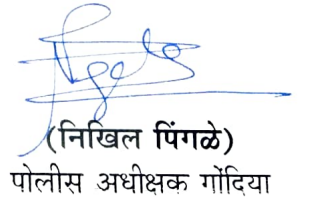 (निखिल पिंगळे)
पोलीस अधीक्षक गोंदिया